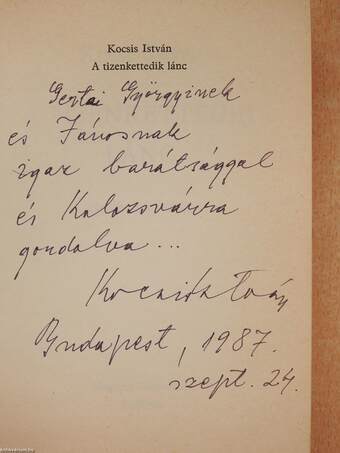 Kocsis István
A tizenkettedik lánc
Györgyinek
és Jánosnak
igaz barátsággal
és Kolozsvárra
gondolva ...
Kocsis István
Budapest, 1987.
szept. 24.